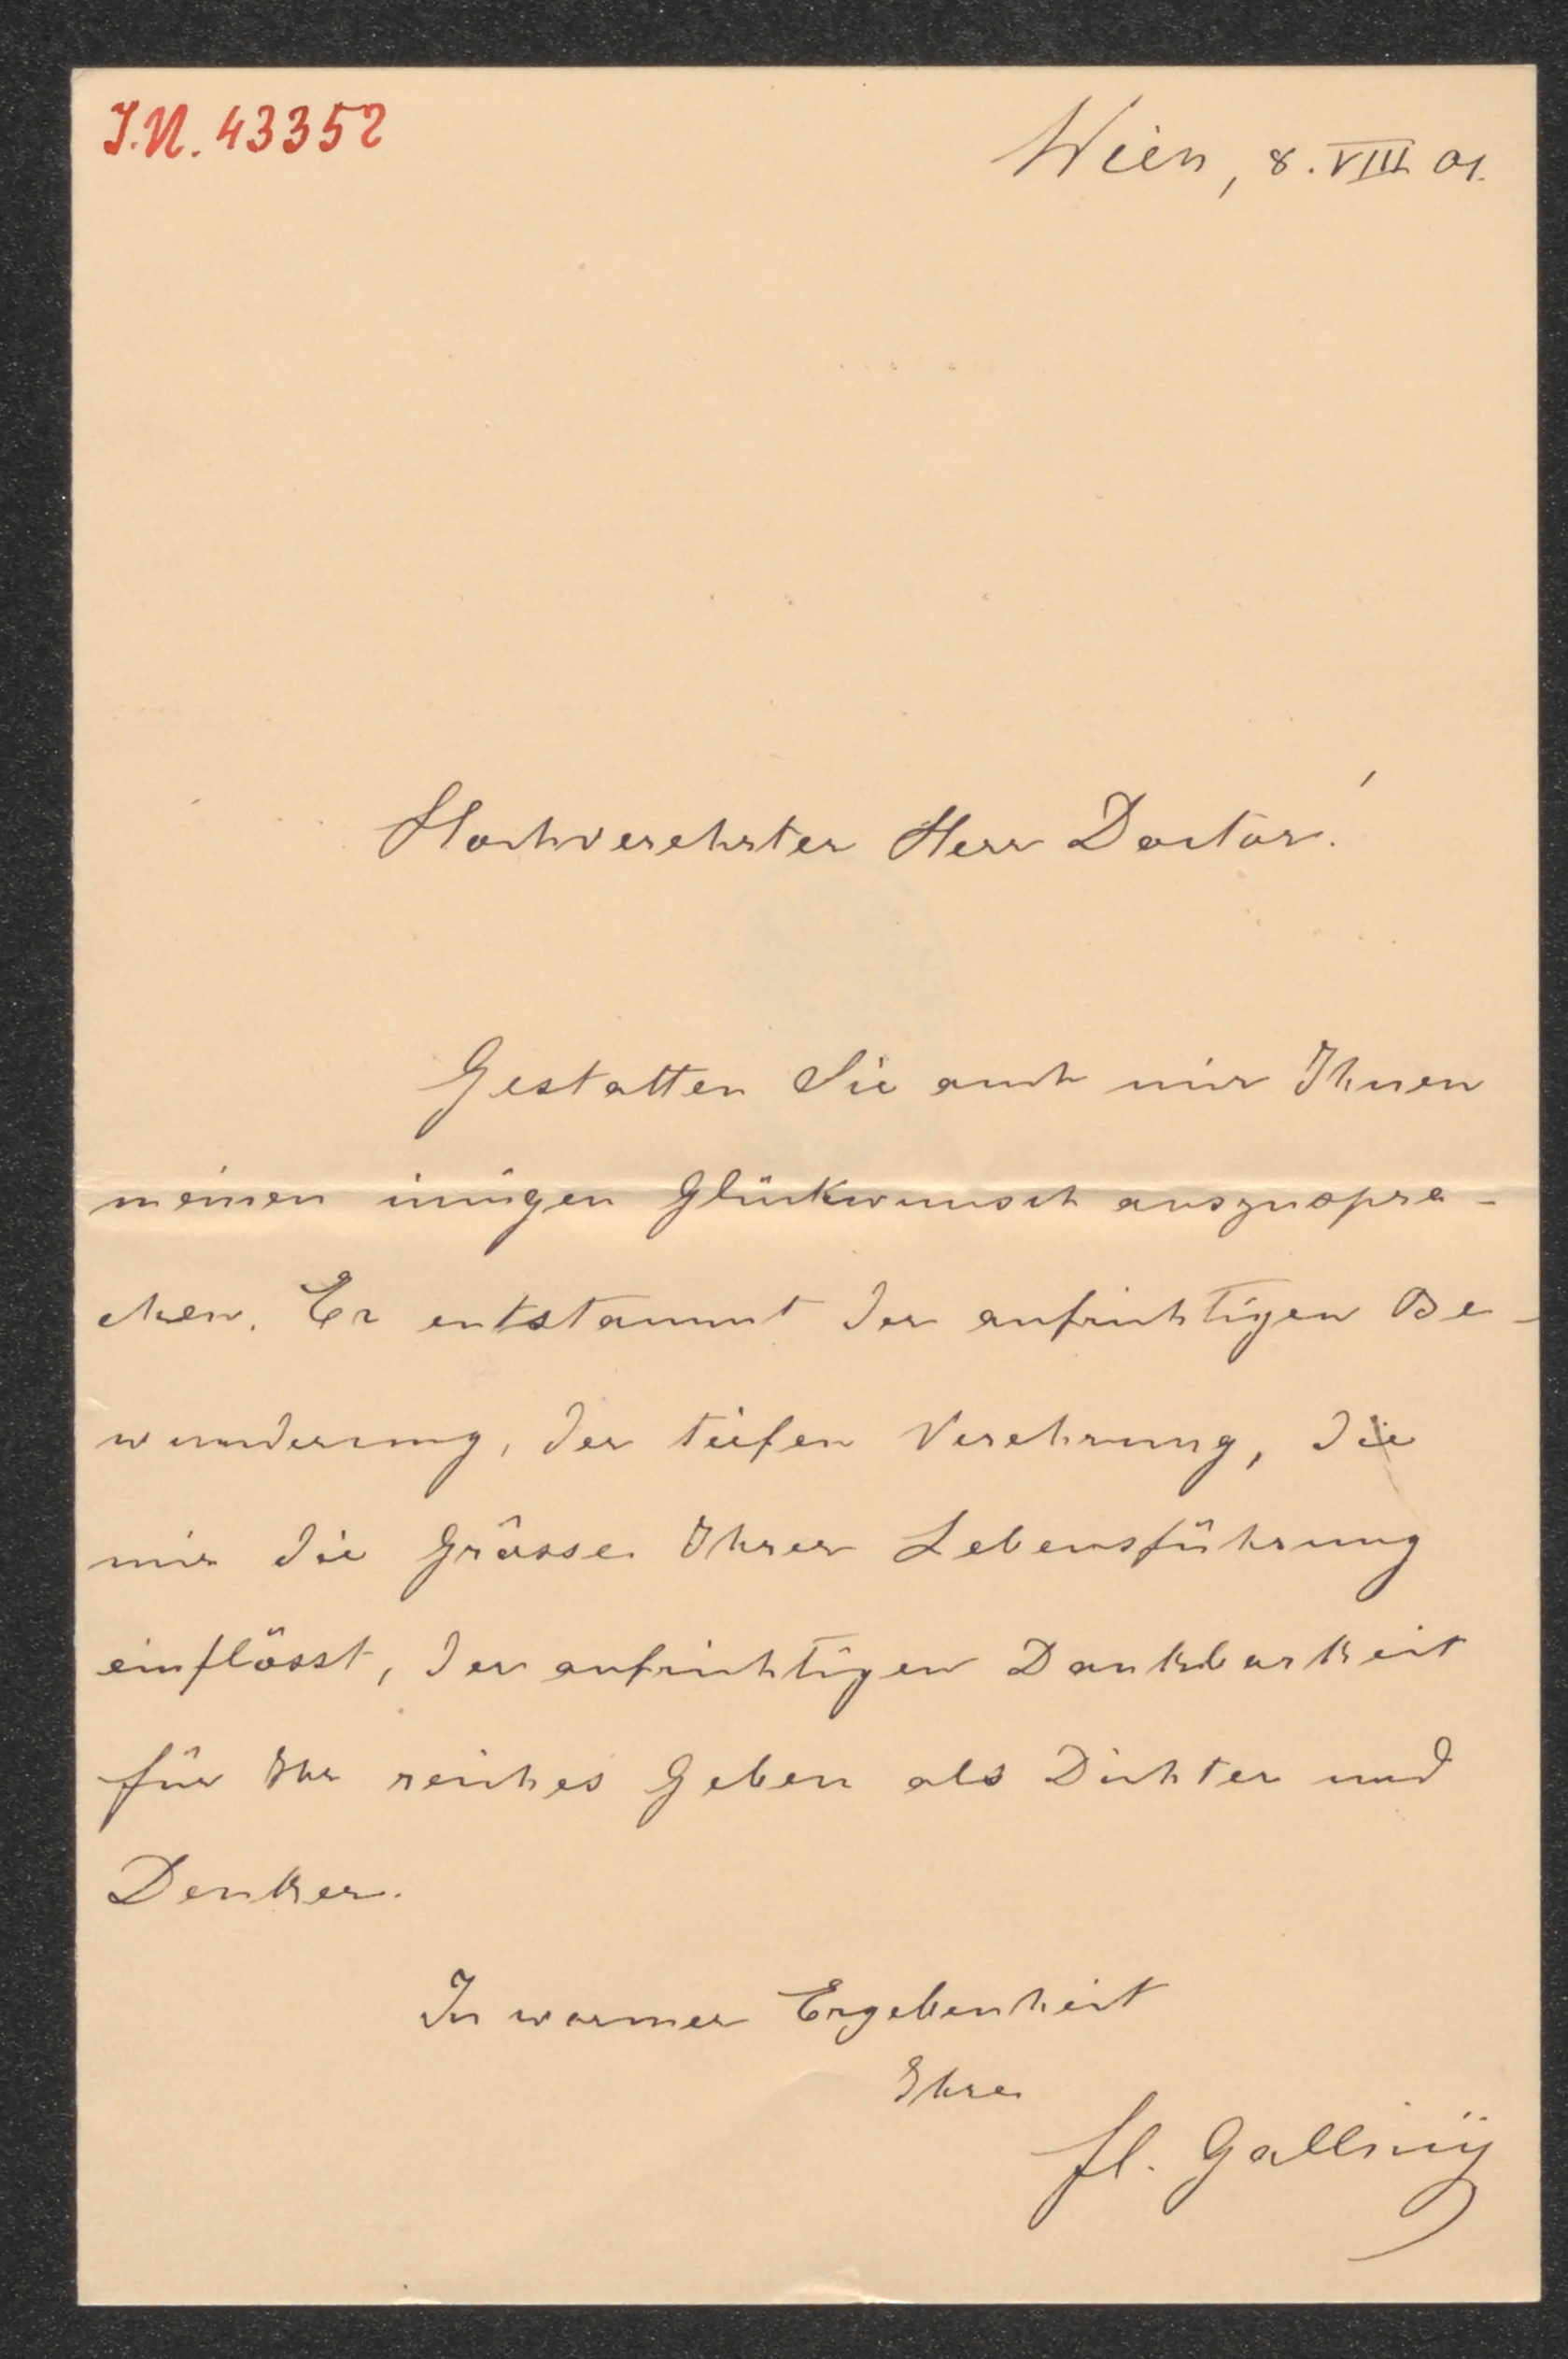 I.N. 43352
Wien, 8. VIII 01.
Hochverehrter Herr Doctor!
Gestatten Sie auch mir Ihnen
meinen innigen Glückwunsch auszuspre-
chen. Er entstammt der aufrichtigen Be-
wunderung, der tiefen Verehrung, die
mir die Grösse Ihrer Lebensführung
einflösst, der aufrichtigen Dankbarkeit
für Ihr reiches Geben als Dichter und
Denker.
In warmer Ergebenheit
Ihre
fl. Galliny